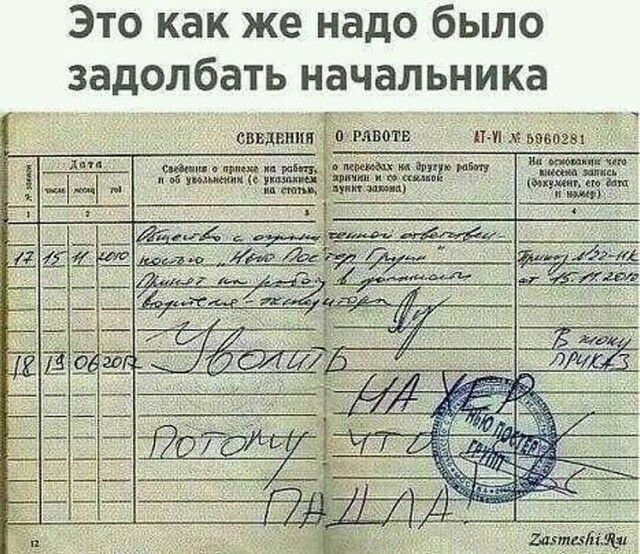 Это как же надо было
задолбать начальника
СВЕДЕНИЯ О РАБОТЕ АТ-VI № 5960281
№ записи
Дата
число месяц год
Сведения о приеме на работу, о переводах на другую работу
и об увольнении (с указанием причин и со ссылкой
на статью, пункт закона)
На основании чего
внесена запись
(документ, его дата
и номер)
1 2 3 4
Общество с ограниченной ответствен-
17 15 11 2010 ностью „Нью Постер Групп" Приказ №22-НК
Принят на работу в должности от 15.11.2010
водителя-экспедитора
В жопу
18 19 06 2012 Уволить ПРИКАЗ
НАХЕР
Потому что
ПАДЛА!
НЬЮ ПОСТЕР
ГРУПП
12
Zasmeshi.Ru